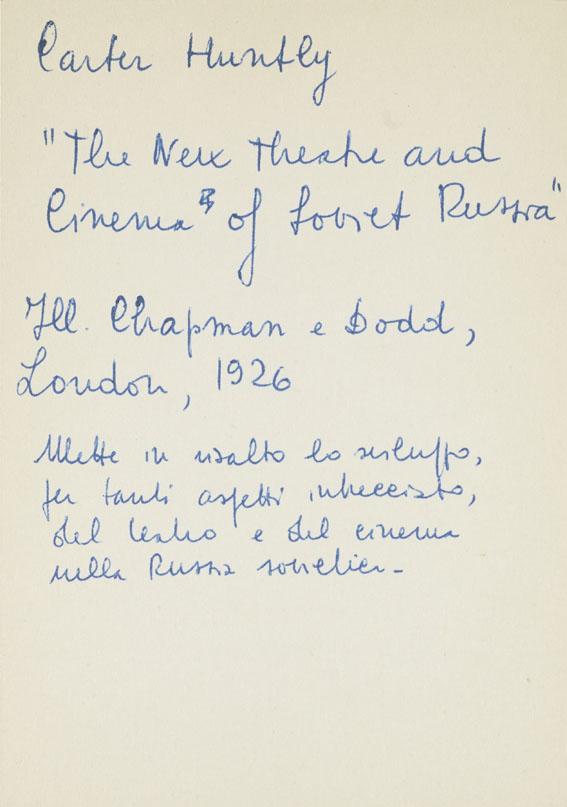 Carter Huntly
"The New Theatre and
Cinema of Soviet Russia"
Ill. Chapman e Dodd,
London, 1926
Mette in risalto lo sviluppo,
per tanti aspetti intrecciato,
del teatro e del cinema
nella Russia sovietica.